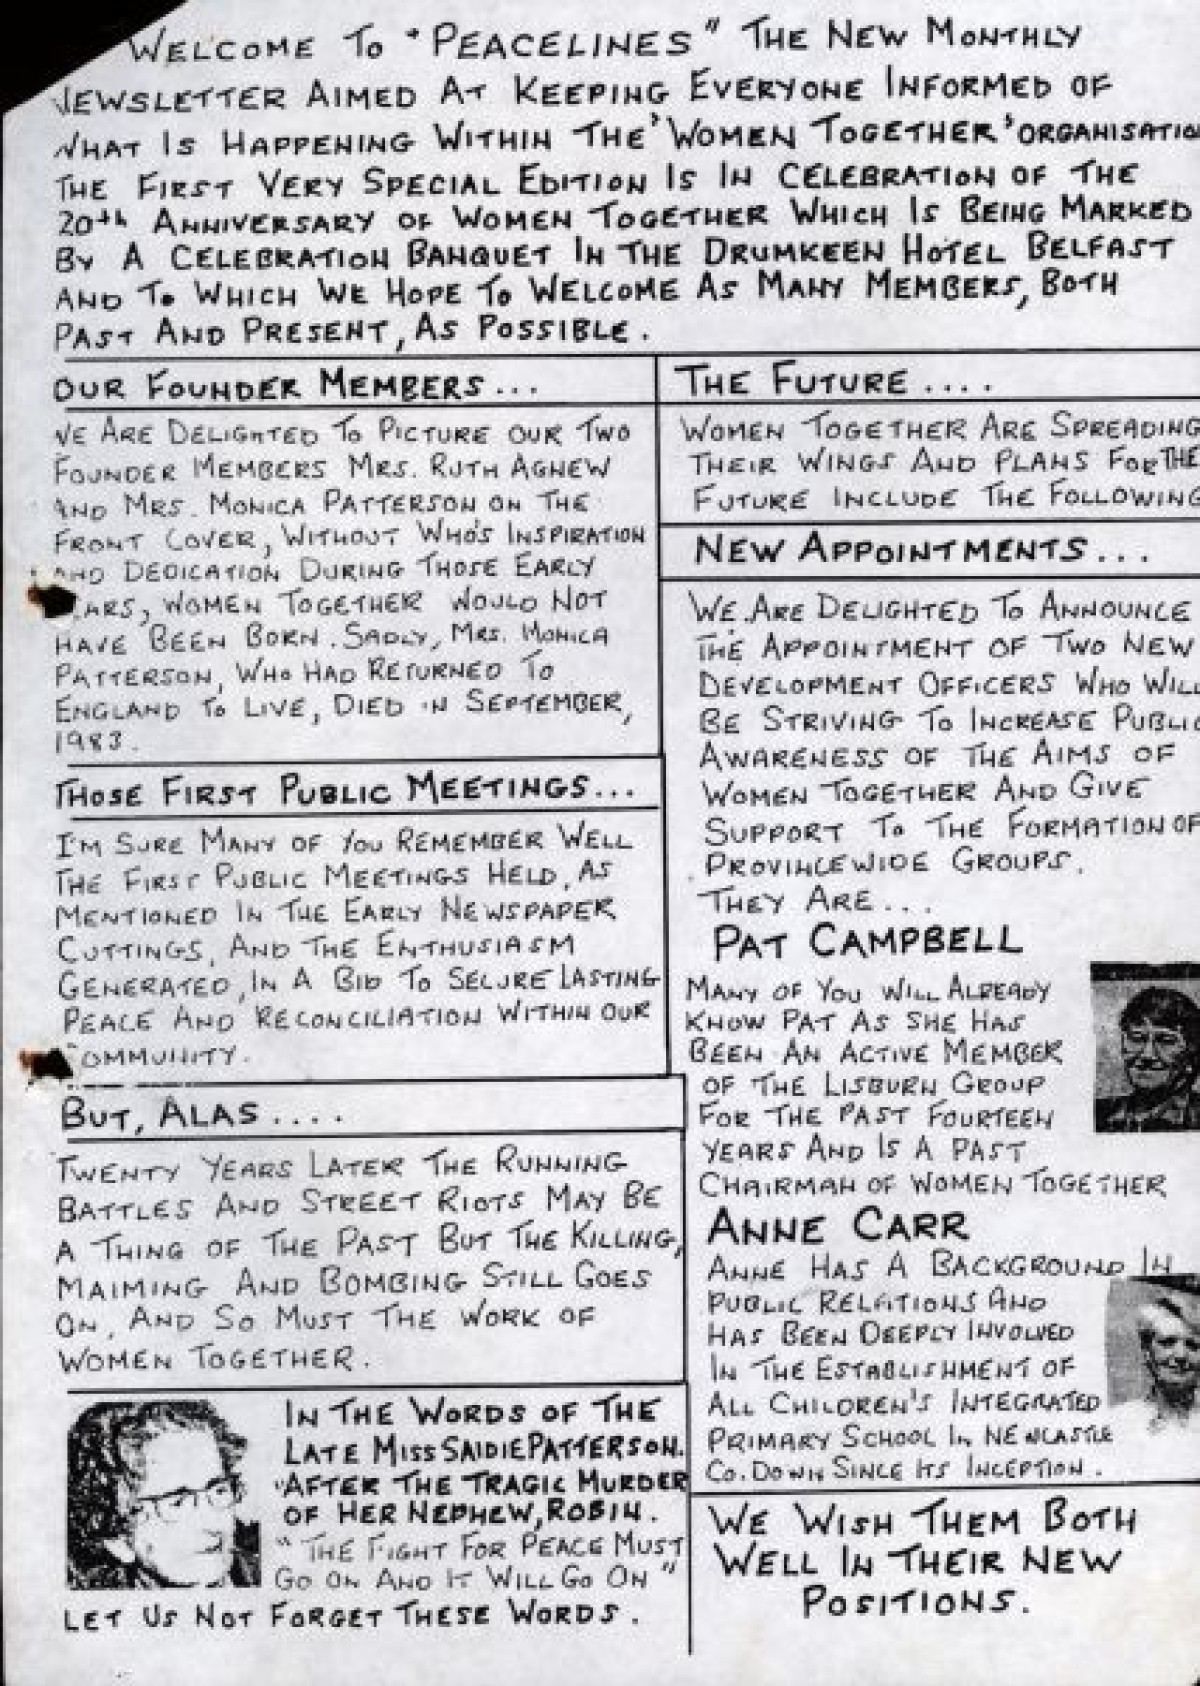 WELCOME TO "PEACELINES" THE NEW MONTHLY
NEWSLETTER AIMED AT KEEPING EVERYONE INFORMED OF
WHAT IS HAPPENING WITHIN THE 'WOMEN TOGETHER' ORGANISATIO
THE FIRST VERY SPECIAL EDITION IS IN CELEBRATION OF THE
20th ANNIVERSARY OF WOMEN TOGETHER WHICH IS BEING MARKED
BY A CELEBRATION BANQUET IN THE DRUMKEEN HOTEL BELFAST
AND TO WHICH WE HOPE TO WELCOME AS MANY MEMBERS, BOTH
PAST AND PRESENT, AS POSSIBLE.
OUR FOUNDER MEMBERS...
WE ARE DELIGHTED TO PICTURE OUR TWO
FOUNDER MEMBERS MRS. RUTH AGNEW
AND MRS. MONICA PATTERSON ON THE
FRONT COVER, WITHOUT WHO'S INSPIRATION
AND DEDICATION DURING THOSE EARLY
EARS, WOMEN TOGETHER WOULD NOT
HAVE BEEN BORN. SADLY, MRS. MONICA
PATTERSON, WHO HAD RETURNED TO
ENGLAND TO LIVE, DIED IN SEPTEMBER,
1983.
THOSE FIRST PUBLIC MEETINGS...
I'M SURE MANY OF YOU REMEMBER WELL
THE FIRST PUBLIC MEETINGS HELD, AS
MENTIONED IN THE EARLY NEWSPAPER
CUTTINGS, AND THE ENTHUSIASM
GENERATED, IN A BID TO SECURE LASTING
PEACE AND RECONCILIATION WITHIN OUR
COMMUNITY.
BUT, ALAS....
TWENTY YEARS LATER THE RUNNING
BATTLES AND STREET RIOTS MAY BE
A THING OF THE PAST BUT THE KILLING,
MAIMING AND BOMBING STILL GOES
ON, AND SO MUST THE WORK OF
WOMEN TOGETHER.
IN THE WORDS OF THE
LATE MISS SAIDIE PATTERSON.
"AFTER THE TRAGIC MURDER
OF HER NEPHEW, ROBIN.
"THE FIGHT FOR PEACE MUST
GO ON AND IT WILL GO ON"
LET US NOT FORGET THESE WORDS.
THE FUTURE....
WOMEN TOGETHER ARE SPREADING
THEIR WINGS AND PLANS FOR THE
FUTURE INCLUDE THE FOLLOWING
NEW APPOINTMENTS...
WE ARE DELIGHTED TO ANNOUNCE
THE APPOINTMENT OF TWO NEW
DEVELOPMENT OFFICERS WHO WILL
BE STRIVING TO INCREASE PUBLIC
AWARENESS OF THE AIMS OF
WOMEN TOGETHER AND GIVE
SUPPORT TO THE FORMATION OF
PROVINCEWIDE GROUPS.
THEY ARE...
PAT CAMPBELL
MANY OF YOU WILL ALREADY
KNOW PAT AS SHE HAS
BEEN AN ACTIVE MEMBER
OF THE LISBURN GROUP
FOR THE PAST FOURTEEN
YEARS AND IS A PAST
CHAIRMAN OF WOMEN TOGETHER
ANNE CARR
ANNE HAS A BACKGROUND IN
PUBLIC RELATIONS AND
HAS BEEN DEEPLY INVOLVED
IN THE ESTABLISHMENT OF
ALL CHILDREN'S INTEGRATED
PRIMARY SCHOOL IN NEWCASTLE
CO. DOWN SINCE ITS INCEPTION.
WE WISH THEM BOTH
WELL IN THEIR NEW
POSITIONS.